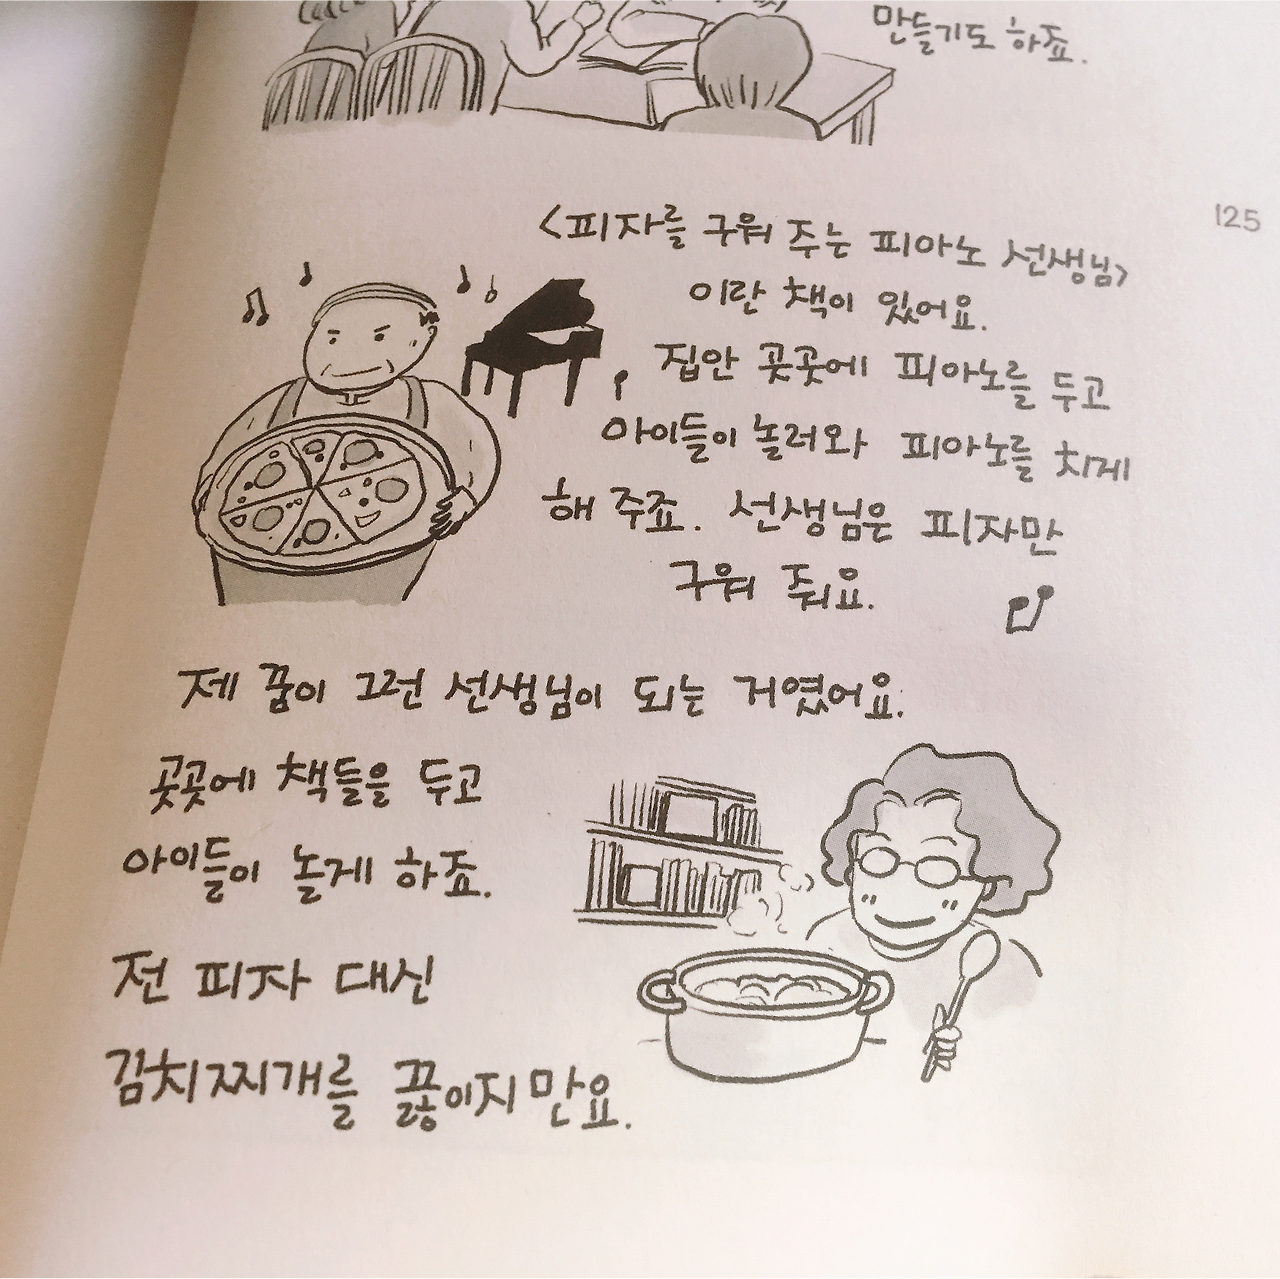 만들기도 하죠.
125
<피자를 구워 주는 피아노 선생님>
이란 책이 있어요.
집안 곳곳에 피아노를 두고
아이들이 놀러와 피아노를 치게
해 주죠. 선생님은 피자만
구워 줘요.
제 꿈이 그런 선생님이 되는 거였어요.
곳곳에 책들을 두고
아이들이 놀게 하죠.
전 피자 대신
김치찌개를 끓이지만요.